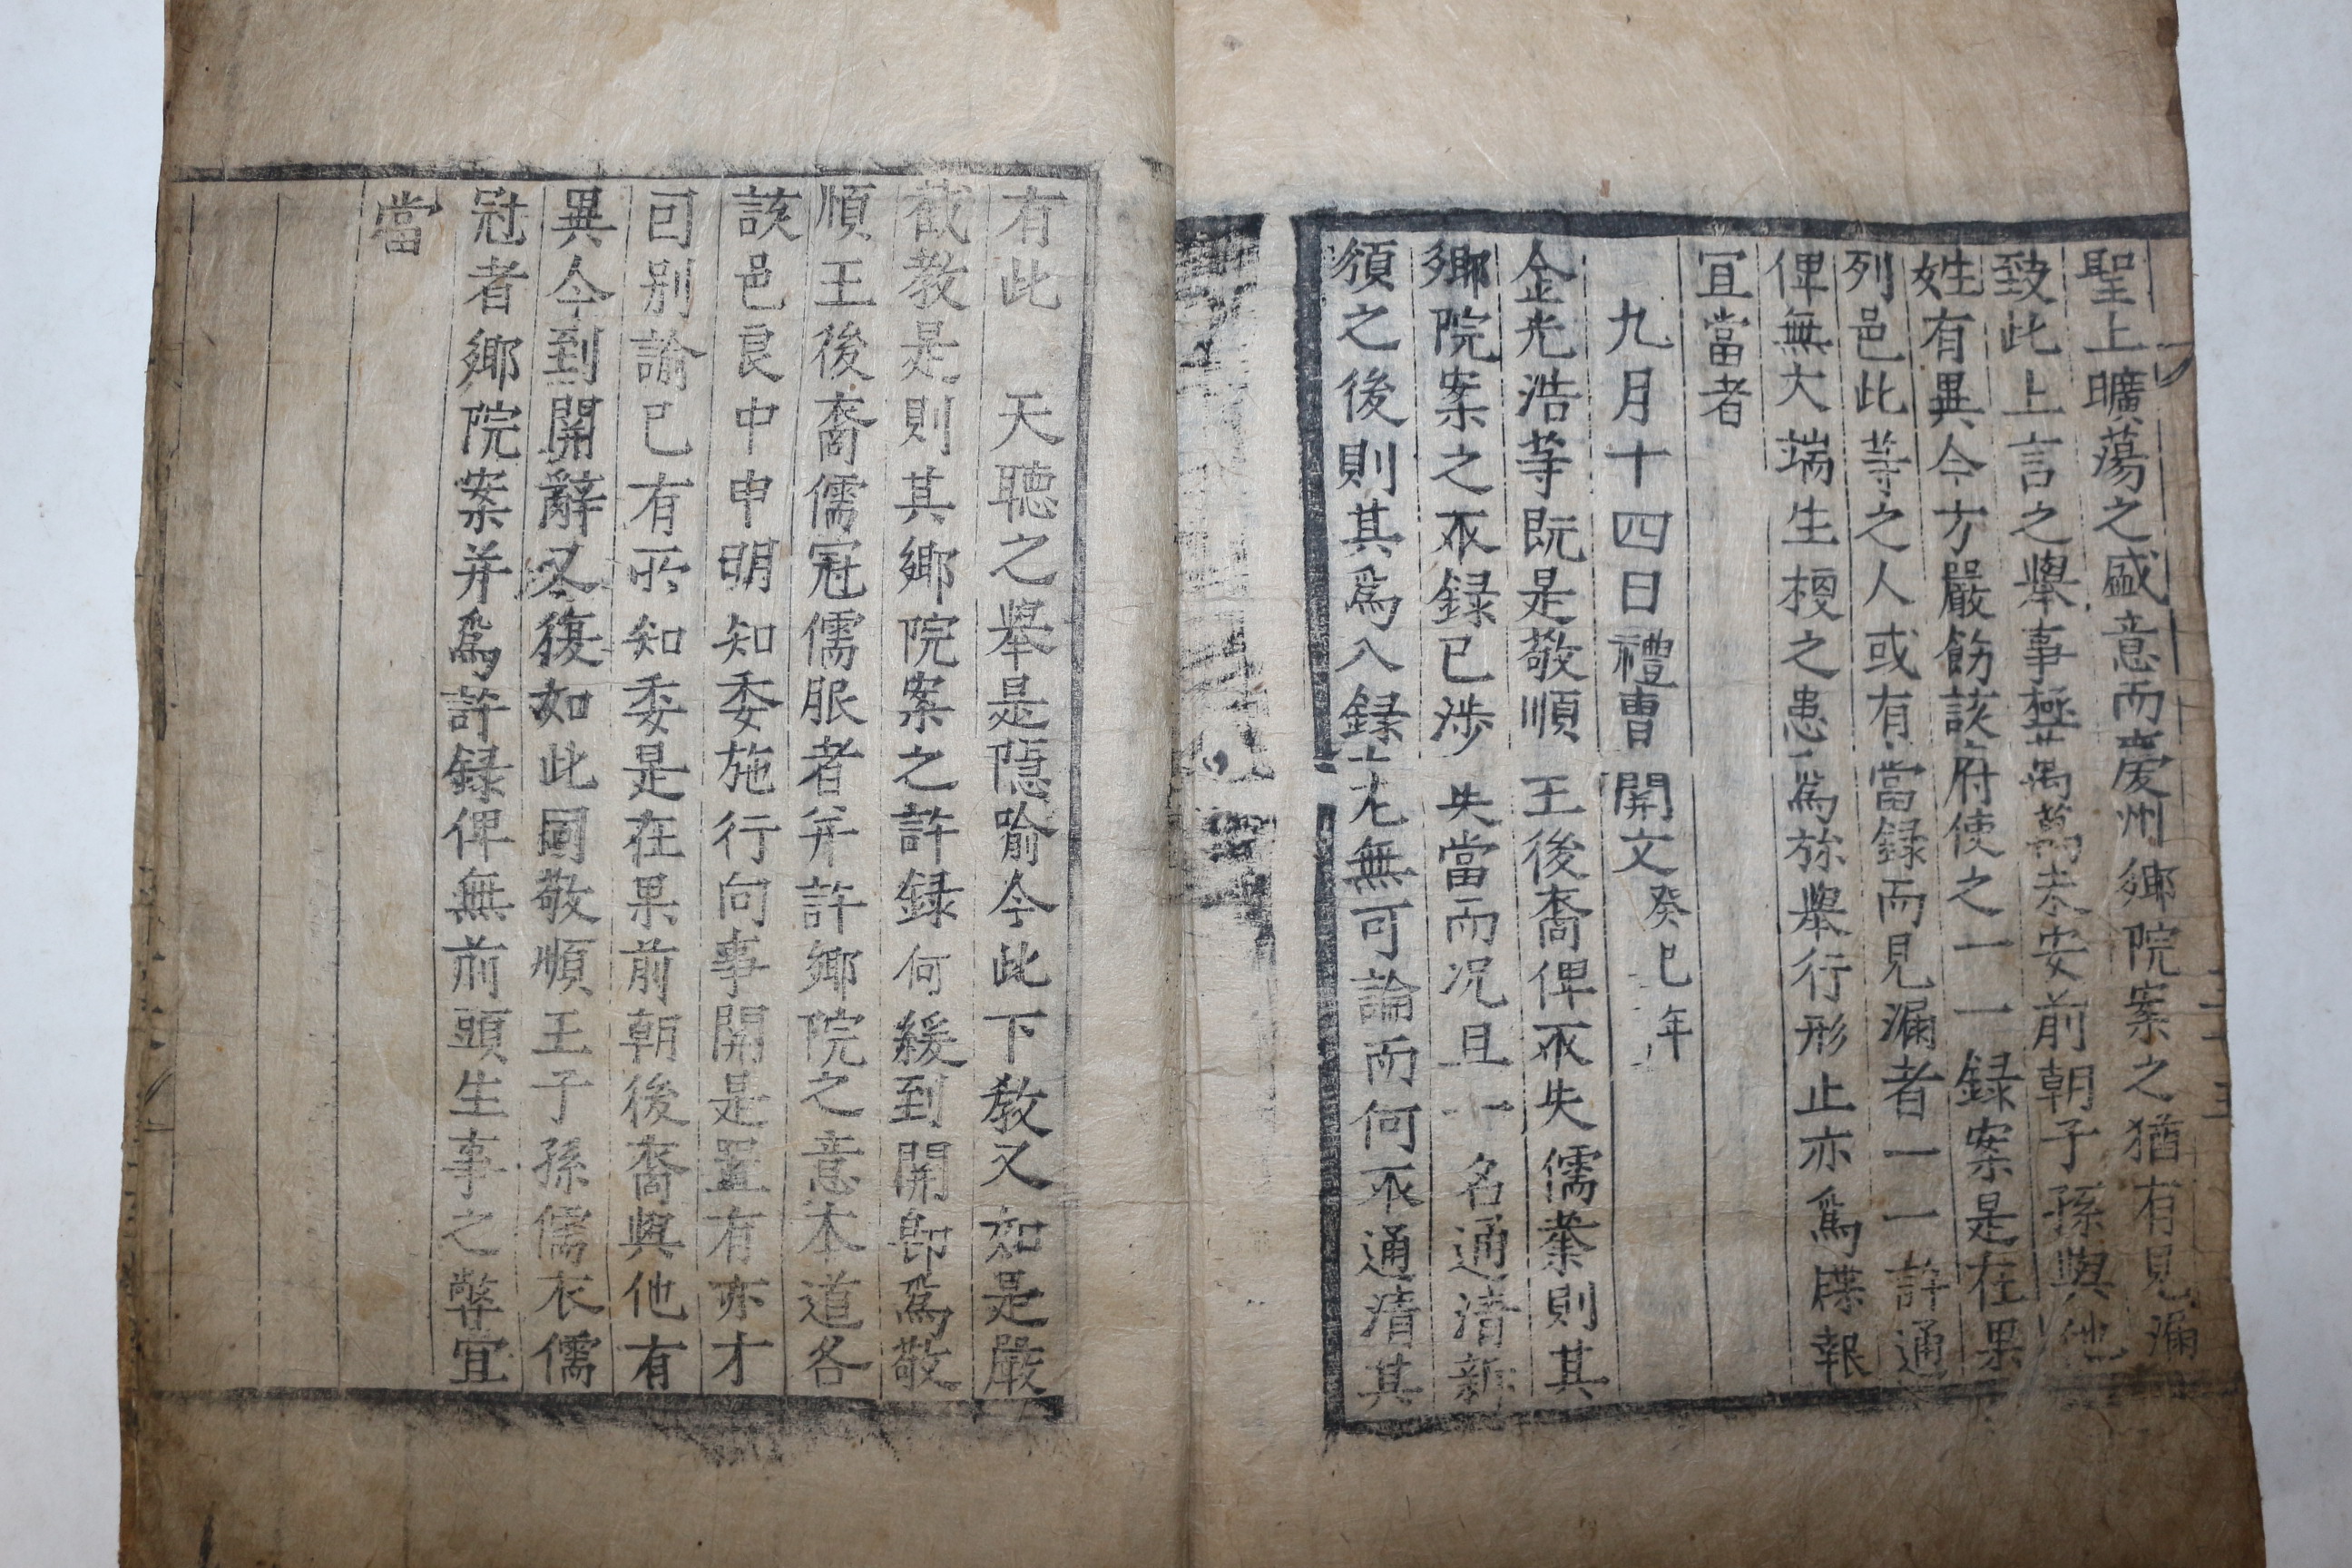 聖上曠蕩之盛意而慶州鄉院案之猶有見漏
致此上言之擧事極萬萬未安前朝子孫與他
姓有異今方嚴飭該府使之一一錄案是在果
列邑此等之人或有當錄而見漏者一一許通
俾無大端生梗之患爲旀擧行形止亦爲牒報
宜當者
九月十四日禮曹 關文 癸巳年
金光浩等既是敬順 王後裔俾不失儒業則其
鄉院案之不錄已涉 失當而况且一名通清新
頒之後則其爲入錄尤無可論而何不通清其
有此 天聽之擧是隱喻今此下教又如是嚴
截教是則其鄉院案之許錄何緩到關卽爲敬
順王後裔儒冠儒服者并許鄉院之意本道各
該邑良中申明知委施行向事關是置有亦才
已別諭已有所知委是在果前朝後裔與他有
異今到關辭又復如此同敬順王子孫儒衣儒
冠者鄉院案并爲許錄俾無前頭生事之弊宜
當